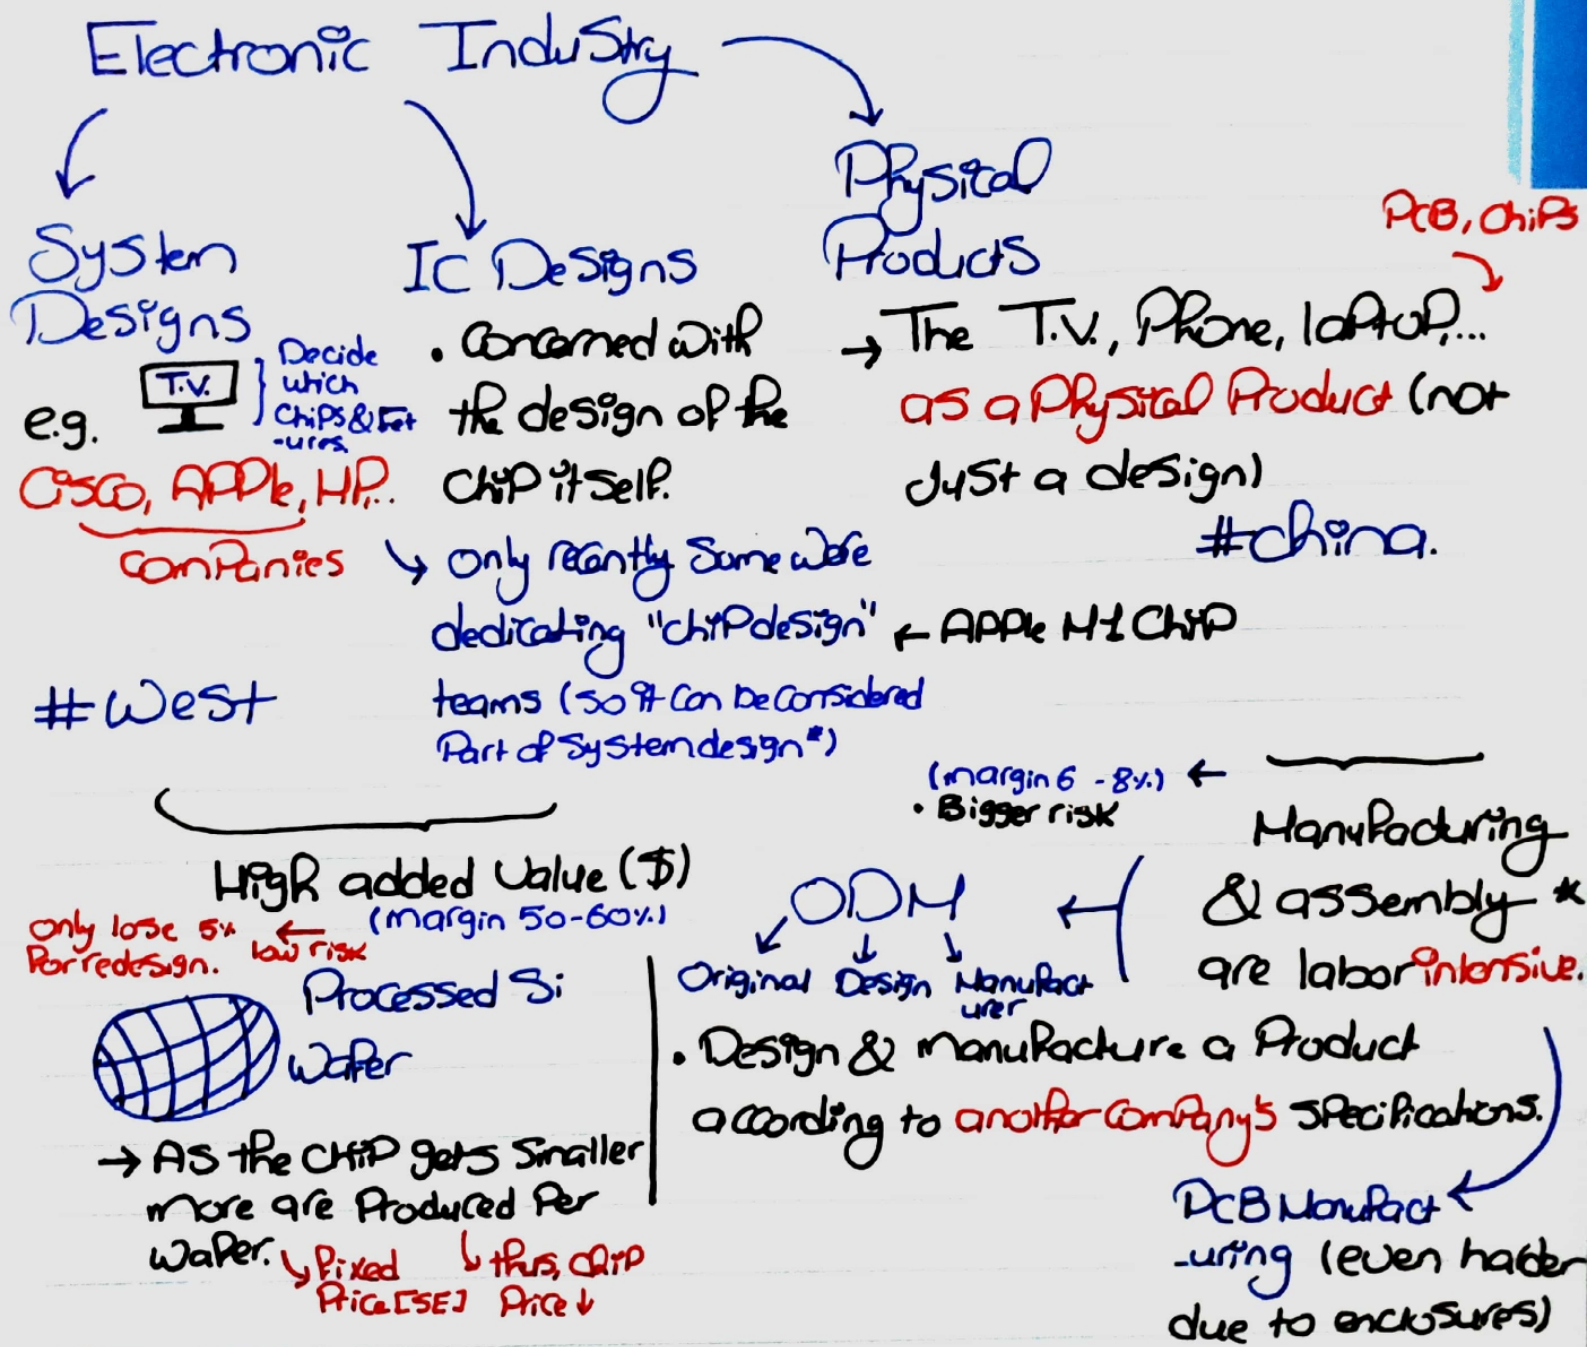 Electronic Industry
System
Designs
e.g.
T.V.
Decide
which
Chips & Fet
-ures.
Cisco, APPle, HP...
Companies
#West
IC Designs
• Concerned with
the design of the
Chip itself.
only recently Some were
dedicating "chip design"
← APPle M1 Chip
teams (so it can be Considered
Part of System design*)
Physical
Products
PCB, Chips
→ The T.V., Phone, laptop,...
as a Physical Product (not
Just a design)
#China.
High added Value ($)
(margin 50-60%)
← low risk
only lose 5%
for redesign.
Processed Si
Wafer
→ As the Chip gets Smaller
more are Produced Per
Wafer.
fixed
Price [SE]
thus, chip
Price ↓
(margin 6 - 8%) ←
• Bigger risk
Manufacturing
& assembly *
are labor intensive.
ODM
Original Design Manufact
urer
• Design & manufacture a Product
according to another Company's specifications.
PCB Manufact
-uring (even harder
due to enclosures)